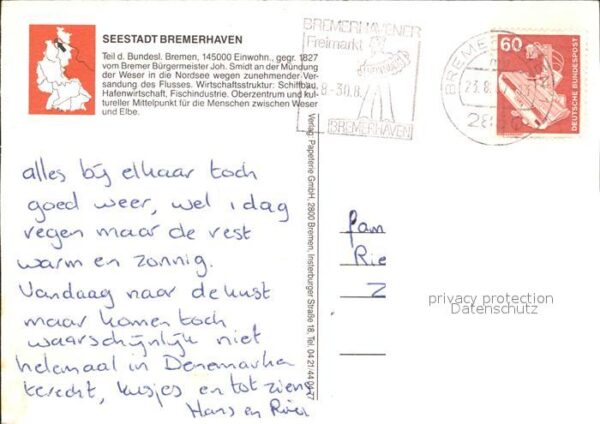 SEESTADT BREMERHAVEN
Teil d. Bundesl. Bremen, 145000 Einwohn., gegr. 1827
vom Bremer Bürgermeister Joh. Smidt an der Mündung
der Weser in die Nordsee wegen zunehmender Ver-
sandung des Flusses. Wirtschaftsstruktur: Schiffbau,
Hafenwirtschaft, Fischindustrie. Oberzentrum und kul-
tureller Mittelpunkt für die Menschen zwischen Weser
und Elbe.
BREMERHAVENER
Freimarkt
8.-30.8
BREMERHAVEN
60
DEUTSCHE BUNDESPOST
alles bij elkaar toch
goed weer, wel 1 dag
regen maar de rest
warm en zonnig.
Vandaag naar de kust
maar komen toch
waarschijnlijk niet
helemaal in Denemarken
terecht, kusjes en tot ziens
Hans en
Verlag: Papeterie GmbH, 2800 Bremen, Insterburger Straße 18, Tel. 04 21/44 04 77
fam
Rie
Z
privacy protection
Datenschutz